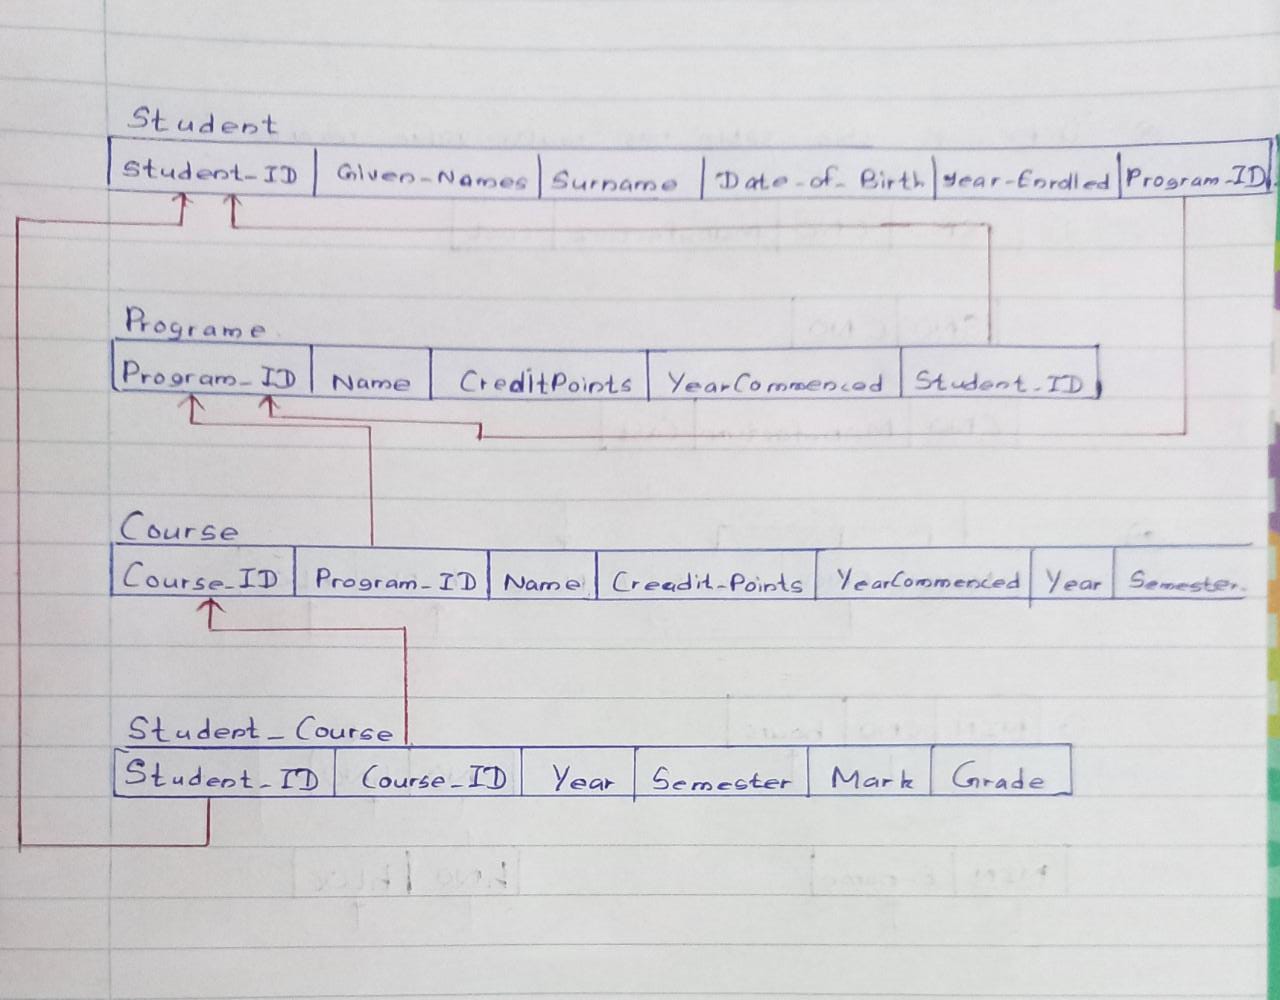 Student
Student_ID Given_Names Surname Date_of_Birth Year-Enrolled Program_ID
Programe
Program_ID Name CreditPoints YearCommenced Student_ID
Course
Course_ID Program_ID Name Creadit_Points YearCommenced Year Semester
Student_Course
Student_ID Course_ID Year Semester Mark Grade